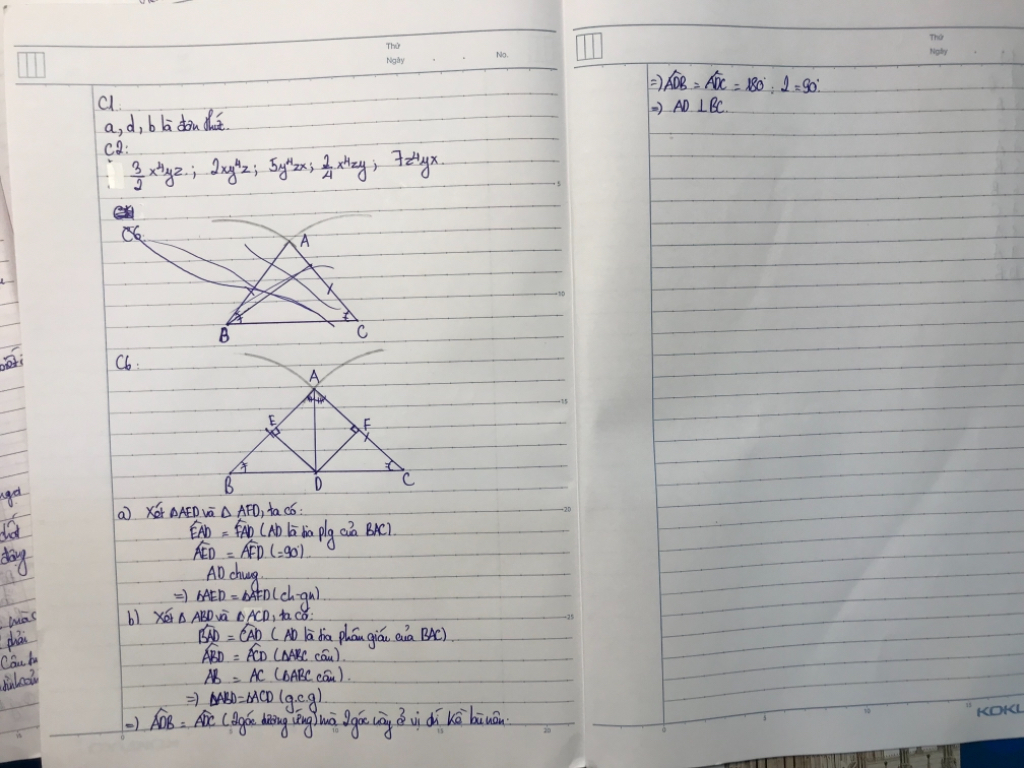 Thứ
Ngày . . No.
C1
a, d, b là đơn thức.
C2:
3/2 x⁴yz ; 2xy⁴z ; 5y⁴zx ; 2/4 x⁴zy ; 7z⁴yx.
C6
A
B C
C6:
A
E F
B D C
a) Xét ΔAED và Δ AFD, ta có:
ÊAD = F̂AD (AD là tia p/g của BAC).
ÂED = ÂFD (=90)
AD chung.
=> ΔAED = ΔAFD (ch-gn)
b) Xét Δ ABD và ΔACD, ta có:
B̂AD = ĈAD ( AD là tia phân giác của BAC).
ÂBD = ÂCD (ΔABC cân).
AB = AC (ΔABC cân).
=> ΔABD=ΔACD (g.c.g)
=> ÂDB = ÂDC (2 góc tương ứng) mà 2 góc này ở vị trí kề bù nên.
Thứ
Ngày
=> ÂDB = ÂDC = 180° : 2 = 90°
=> AD ⊥ BC.
5
10
15
20
25